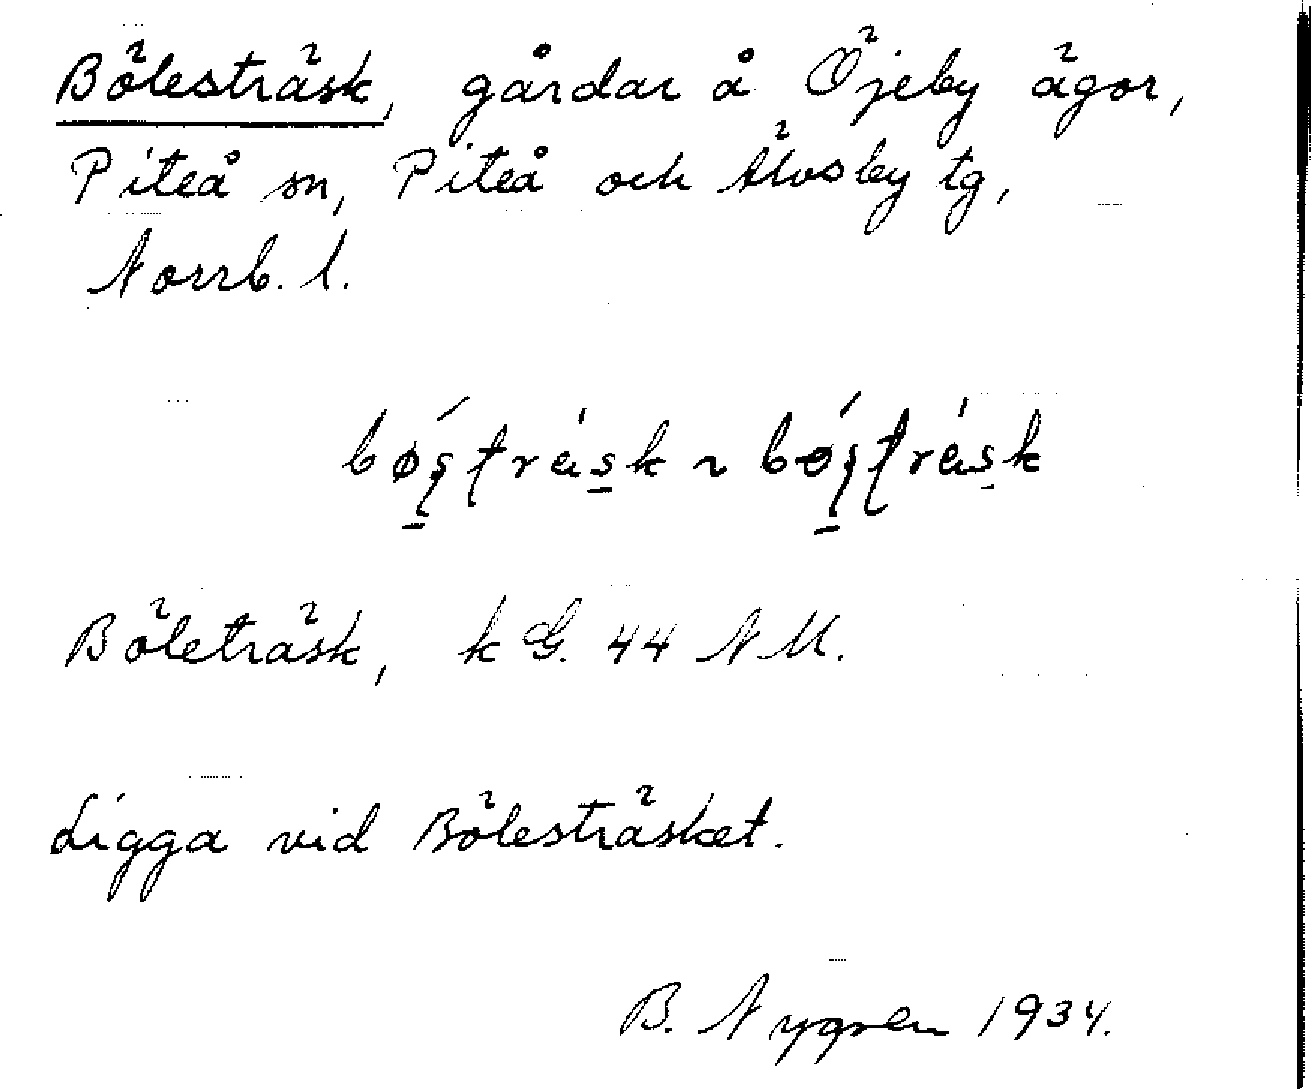 Bölesträsk, gårdar å Öjeby ägor,
Piteå sn, Piteå och Älvsby tg,
Norrb. l.
Böleträsk, k G. 44 NM.
Ligga vid Bölesträsket.
B. Nygren 1934.